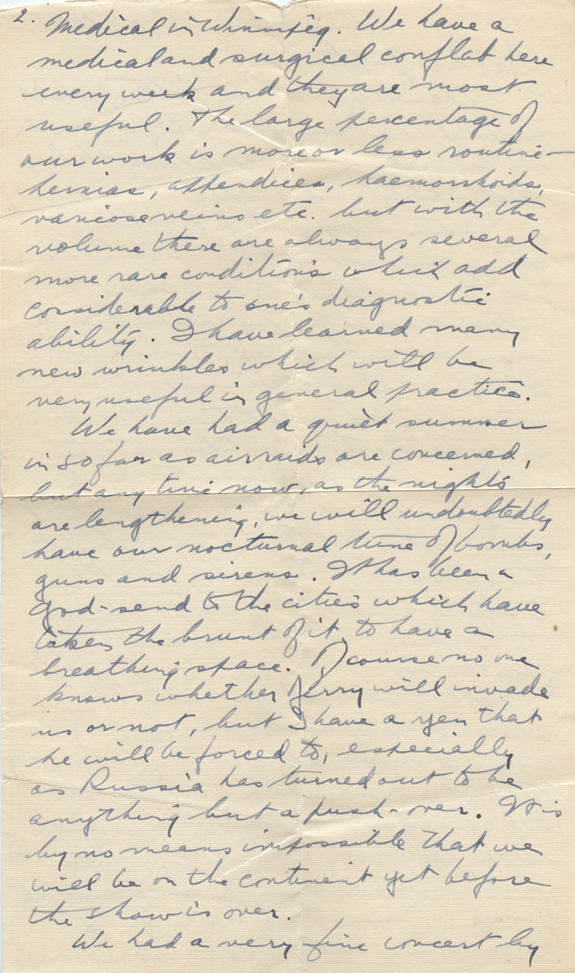 2. Medical in Winnipeg. We have a
medical and surgical conflab here
every week and they are most
useful. The large percentage of
our work is more or less routine —
hernias, appendices, haemorrhoids,
varicose veins etc. but with the
volume there are always several
more rare conditions which add
considerable to one's diagnostic
ability. I have learned many
new wrinkles which will be
very useful in general practice.
We have had a quiet summer
in so far as air raids are concerned,
but any time now, as the nights
are lengthening, we will undoubtedly
have our nocturnal tune of bombs,
guns and sirens. It has been a
god-send to the cities which have
taken the brunt of it, to have a
breathing space. Of course no one
knows whether Jerry will invade
us or not, but I have a yen that
he will be forced to, especially
as Russia has turned out to be
anything but a push-over. It is
by no means impossible that we
will be on the continent yet before
the show is over.
We had a very fine concert by